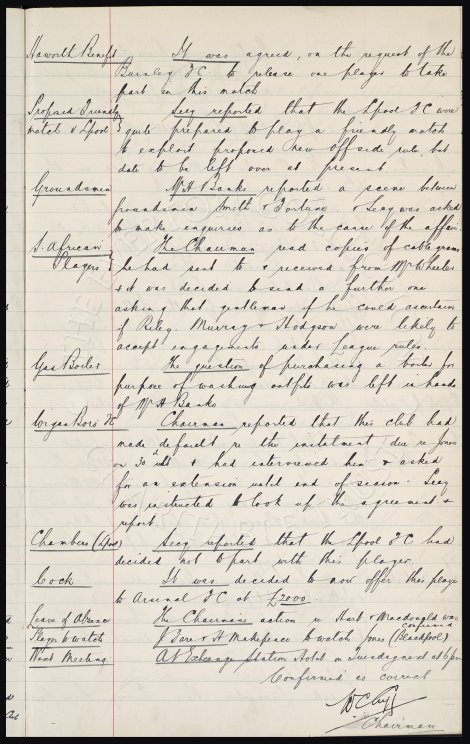 Haworth Benefit It was agreed, on the request of the
Burnley FC to release one player to take
part in this match
Proposed Friendly Secy reported that the Lpool FC were
match v Lpool quite prepared to play a friendly match
to exploit proposed new offside rule, but
date to be left over at present.
Groundsmen Mr H Banks reported a scene between
groundsmen Smith & Fortune. & Secy was asked
to make enquiries as to the cause of the affair.
S. African The Chairman read copies of cablegrams
Players he had sent to & received from Mr Wheeler
& it was decided to send a further one
asking that gentleman if he could ascertain
if Riley, Murray & Hodgson were likely to
accept engagements under League rules.
Gas Boiler The question of purchasing a boiler for
purpose of washing outfits was left in hands
of Mr H Banks
Wigan Boro' FC Chairman reported that this club had
made default re the instalment due re Jones
on 30th & had interviewed him & asked
for an extension until end of season. Secy
was instructed to look up the agreement &
report.
Chambers (Lpool) Secy reported that the Lpool FC had
decided not to part with this player
Cock It was decided to now offer this player
to Arsenal FC at £2000.
Leave of Absence The Chairman's action re Hart & Macdonald was
confirmed
Player to watch & H Makepeace to watch Jones (Blackpool)
Next Meeting At Exchange Station Hotel on Tuesday next at 6 pm
Confirmed as correct
W C Cuff
Chairman